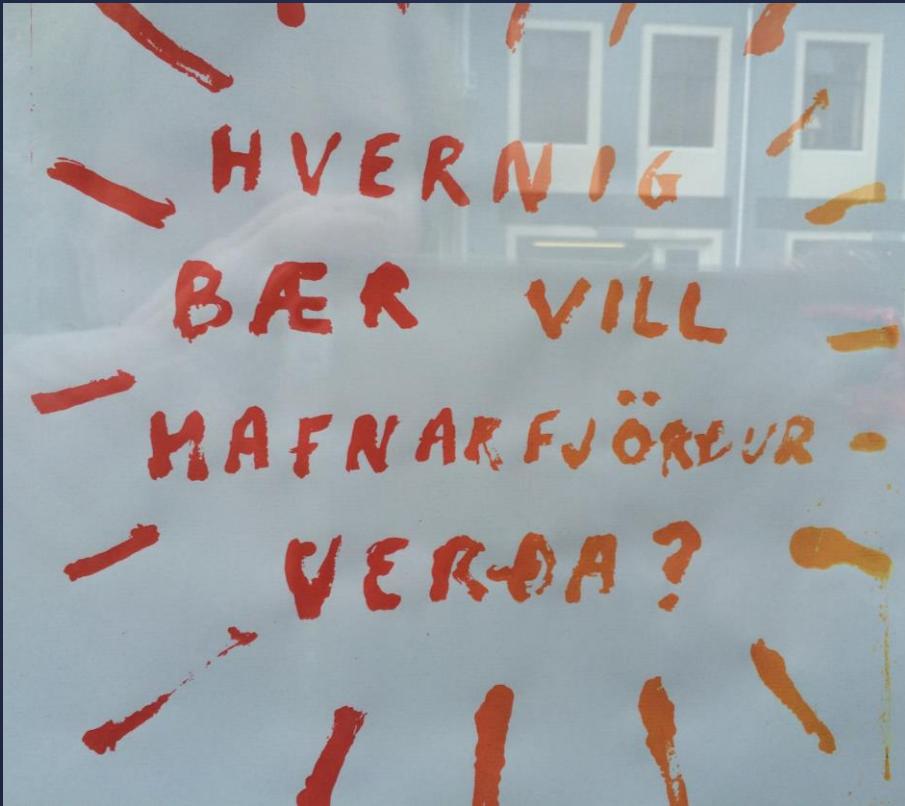 HVERNIG
BÆR VILL
HAFNARFJÖRÐUR
VERÐA?